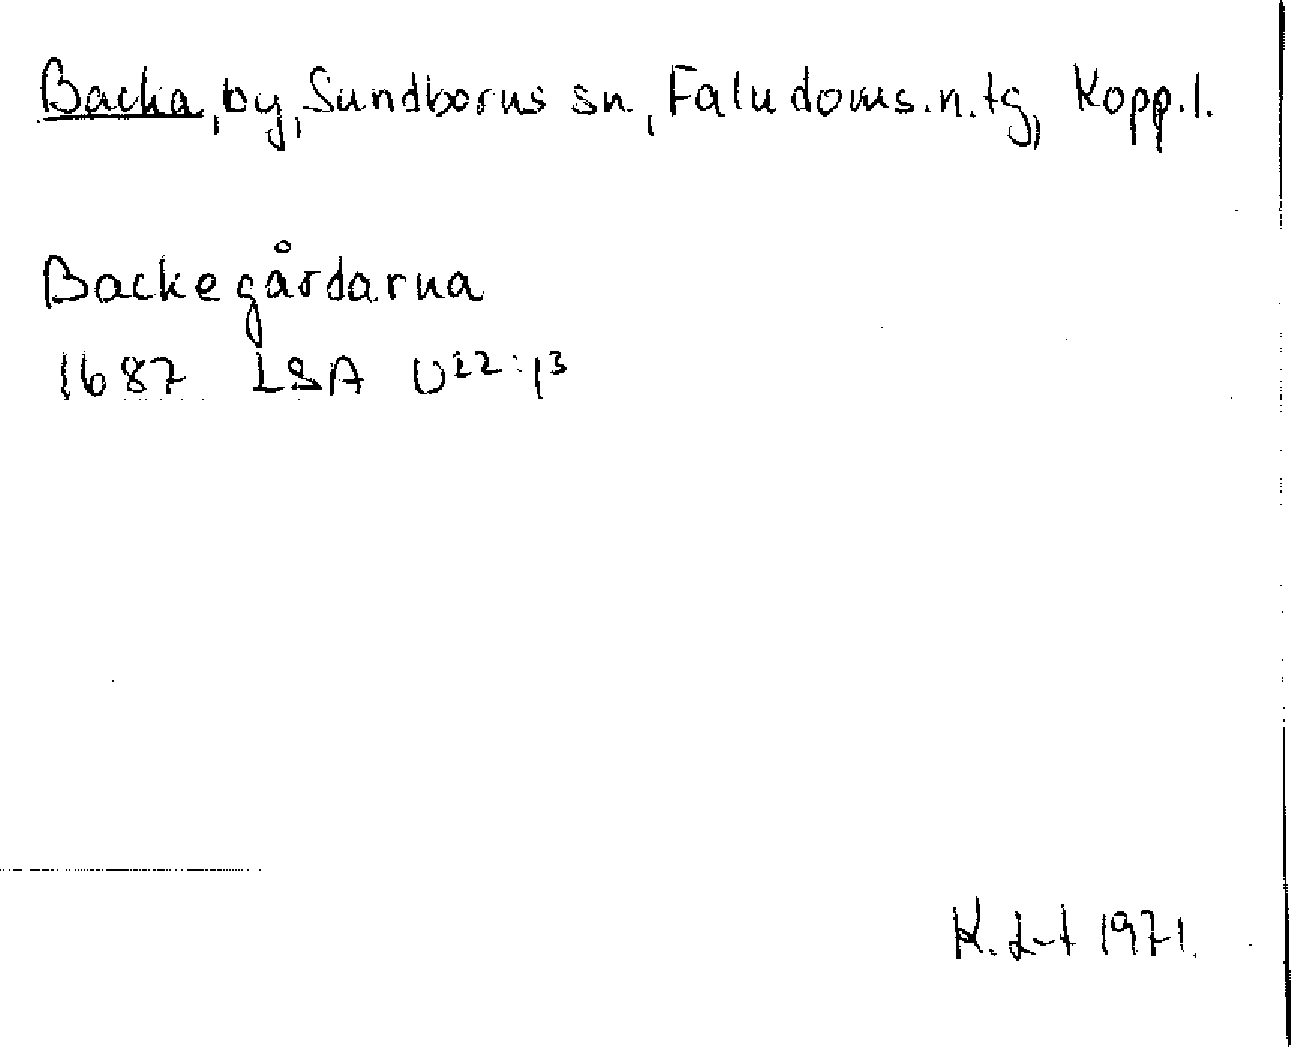 Backa, by, Sundborns sn, Falu doms.n.tg, Kopp.l.
Backegårdarna
1687 LSA U22:13
K. L-t 1971.